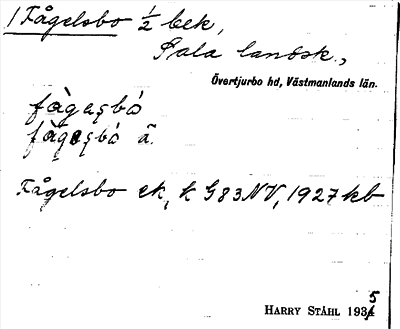 1 Fågelsbo 1/2 bek,
Sala landsk.,
Övertjurbo hd, Västmanlands län.
fàgesbó
fàgesbó ä.
Fågelsbo ek, k G83NV, 1927 kb
HARRY STÅHL 1935